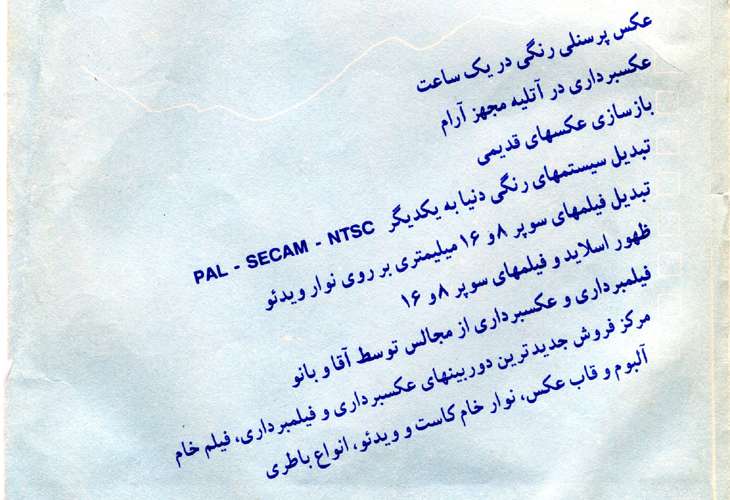 عکس پرسنلی رنگی در یک ساعت
عکسبرداری در آتلیه مجهز آرام
بازسازی عکسهای قدیمی
تبدیل سیستمهای رنگی دنیا به یکدیگر PAL - SECAM - NTSC
تبدیل فیلمهای سوپر ۸ و ۱۶ میلیمتری بر روی نوار ویدئو
ظهور اسلاید و فیلمهای سوپر ۸ و ۱۶
فیلمبرداری و عکسبرداری از مجالس توسط آقا و بانو
مرکز فروش جدیدترین دوربینهای عکسبرداری و فیلمبرداری، فیلم خام
آلبوم و قاب عکس، نوار خام کاست و ویدئو، انواع باطری